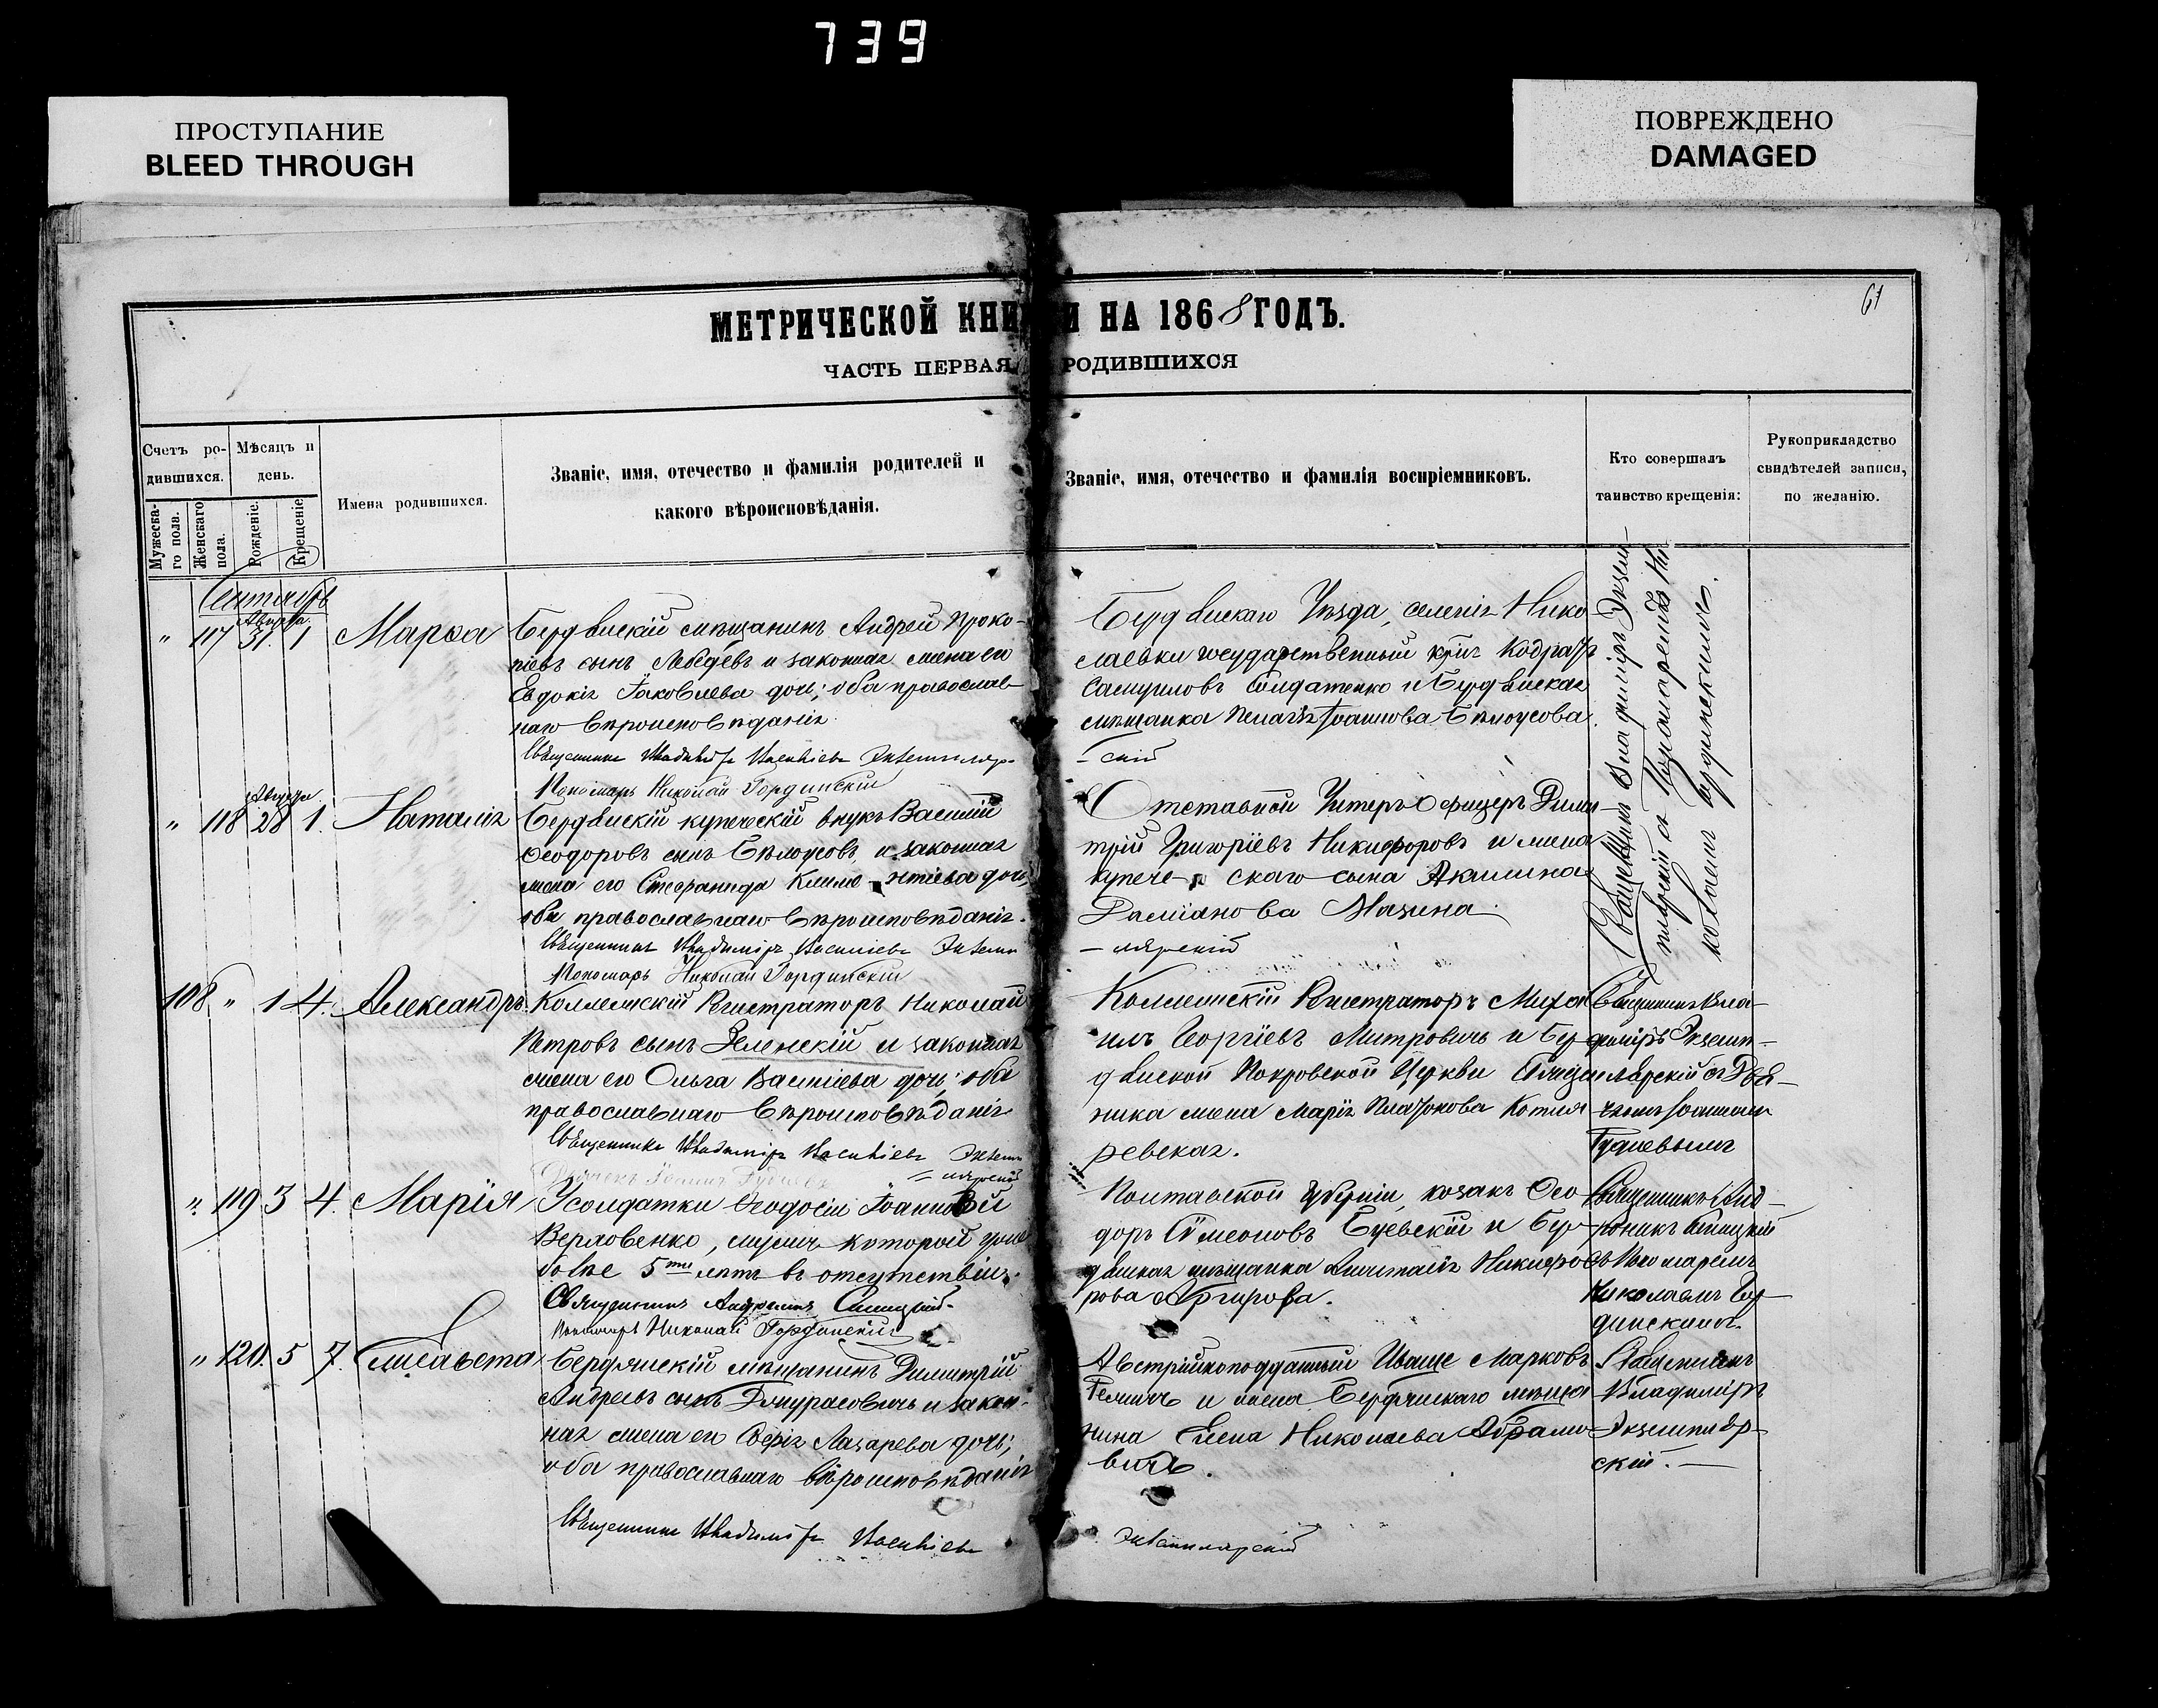 739
ПРОСТУПАНИЕ
BLEED THROUGH
ПОВРЕЖДЕНО
DAMAGED
61
МЕТРИЧЕСКОЙ КНИ И НА 1868 ГОДЪ.
ЧАСТЬ ПЕРВАЯ РОДИВШИХСЯ
Счетъ ро-
дившихся.
Мужеска-
го пола.
Женскаго
пола.
Мѣсяцъ и
день.
Рожденіе.
Крещеніе
Имена родившихся.
Званіе, имя, отечество и фамилія родителей и
какого вѣроисповѣданія.
Званіе, имя, отечество и фамилія воспріемниковъ.
Кто совершалъ
таинство крещенія:
Рукоприкладство
свидѣтелей записи,
по желанію.
Сентябрь
Августа
" 117 31. 1 Марѳа
Бердянскій мѣщанинъ Андрей Проко-
піевъ сынъ Лебедевъ и законная жена его
Евдокія Іаковлева дочь; оба православ-
наго вѣроисповѣданія
Священникъ Владиміръ Васильевъ Экземпляр-
Пономарь Николай Гординскій
Бердянскаго Уѣзда, селенія Нико
лаевки государственный Кодратъ
Самуиловъ Солдатенко и Бердянская
мѣщанка Пелагія Іоаннова Бѣлоусова.
- скій
Священникъ Владиміръ Экзем-
плярскій съ Пономаремъ Ни-
колаемъ Гординскимъ.
Августа
" 118 28 1. Наталія
Бердянскій купеческій внукъ Василій
Ѳеодоровъ сынъ Бѣлоусовъ, и законная
жена его Стефанида Климентіева дочь,
оба православнаго вѣроисповѣданія.
Священникъ Владиміръ Васильевъ Экземп
Пономарь Николай Гординскій
Отставной Унтеръ Офицеръ Дими-
трій Григоріевъ Никифоровъ и жена
купече- скаго сына Акилина
Даміанова Мазина.
- лярскій
108 " 1 4. Александръ.
Коллежскій Регистраторъ Николай
Петровъ сынъ Зеленскій и законная
жена его Ольга Васильева дочь; оба
православнаго вѣроисповѣданія
Священникъ Владиміръ Васильевъ Экземп
= лярскій
Коллежскій Регистраторъ Миха
илъ Георгіевъ Митровичь и Бер
дянской Покровской Церкви
ника жена Марія Платонова Котля
ревская.
Священникъ Вла-
диміръ Экземп-
лярскій съ Дья-
чкомъ Іоанномъ
" 119 3 4. Марія
У солдатки Ѳеодосіи Іоанновой
Верховенко, мужъ которой уже
болѣе 5ти лѣтъ въ отсутствіи.
Священникъ Синицкій.
Пономарь Николай Гординскій
Полтавской губерніи, козакъ Ѳео
доръ Симеоновъ и Бер-
дянская мѣщанка Никифо
рова Аргирова.
Священникъ
Синицкій
съ Пономаремъ
Николаемъ Гор-
динскимъ.
" 120. 5 7. Елисавета
Бердянскій мѣщанинъ Димитрій
Андреевъ сынъ и закон-
ная жена его Софія Лазарева дочь;
оба православнаго вѣроисповѣданія
Священникъ Владиміръ Васильевъ
Австрійскоподданный Марковъ
и жена Бердянскаго мѣща
нина Елена Николаева Абрамо
вичь.
Экземплярскій
Священникъ
Владиміръ
Экземпляр-
скій. -